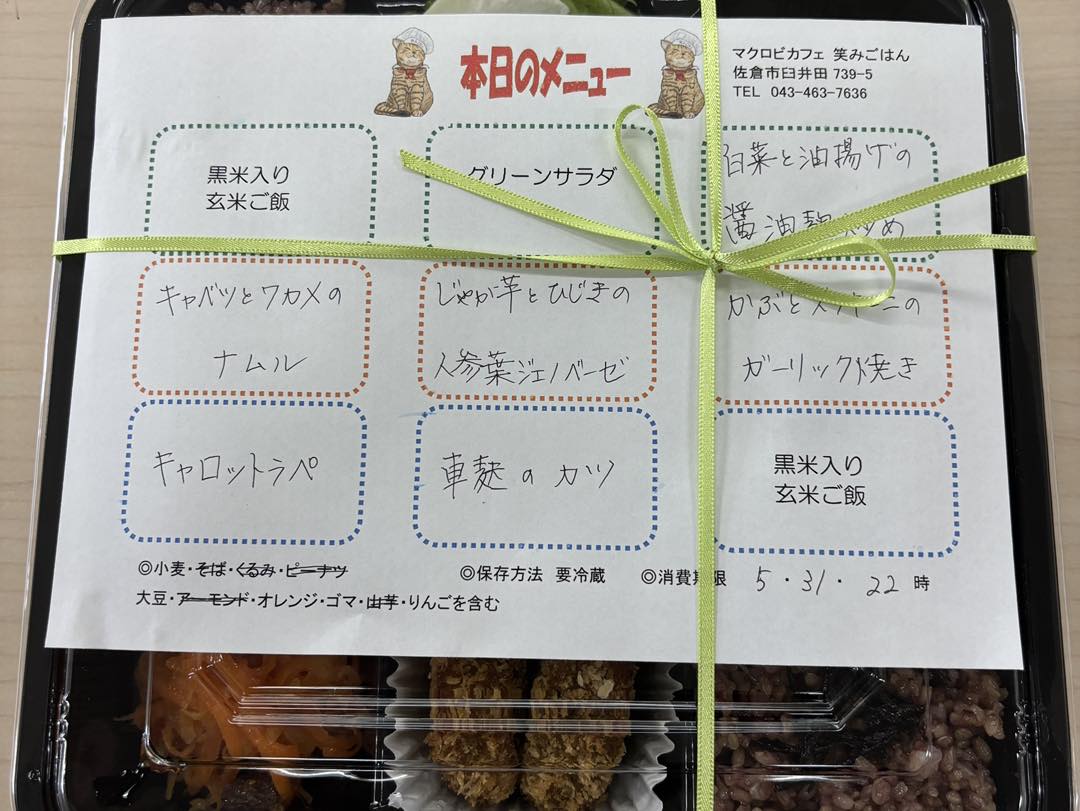 本日のメニュー
マクロビカフェ 笑みごはん
佐倉市臼井田 739-5
TEL 043-463-7636
黒米入り
玄米ご飯
グリーンサラダ
白菜と油揚げの
醤油麹炒め
キャベツとワカメの
ナムル
じゃが芋とひじきの
人参葉ジェノベーゼ
かぶとズッキーニの
ガーリック焼き
キャロットラペ
車麩のカツ
黒米入り
玄米ご飯
◎小麦・そば・くるみ・ピーナツ
大豆・アーモンド・オレンジ・ゴマ・山芋・りんごを含む
◎保存方法 要冷蔵
◎消費期限 5・31・22時